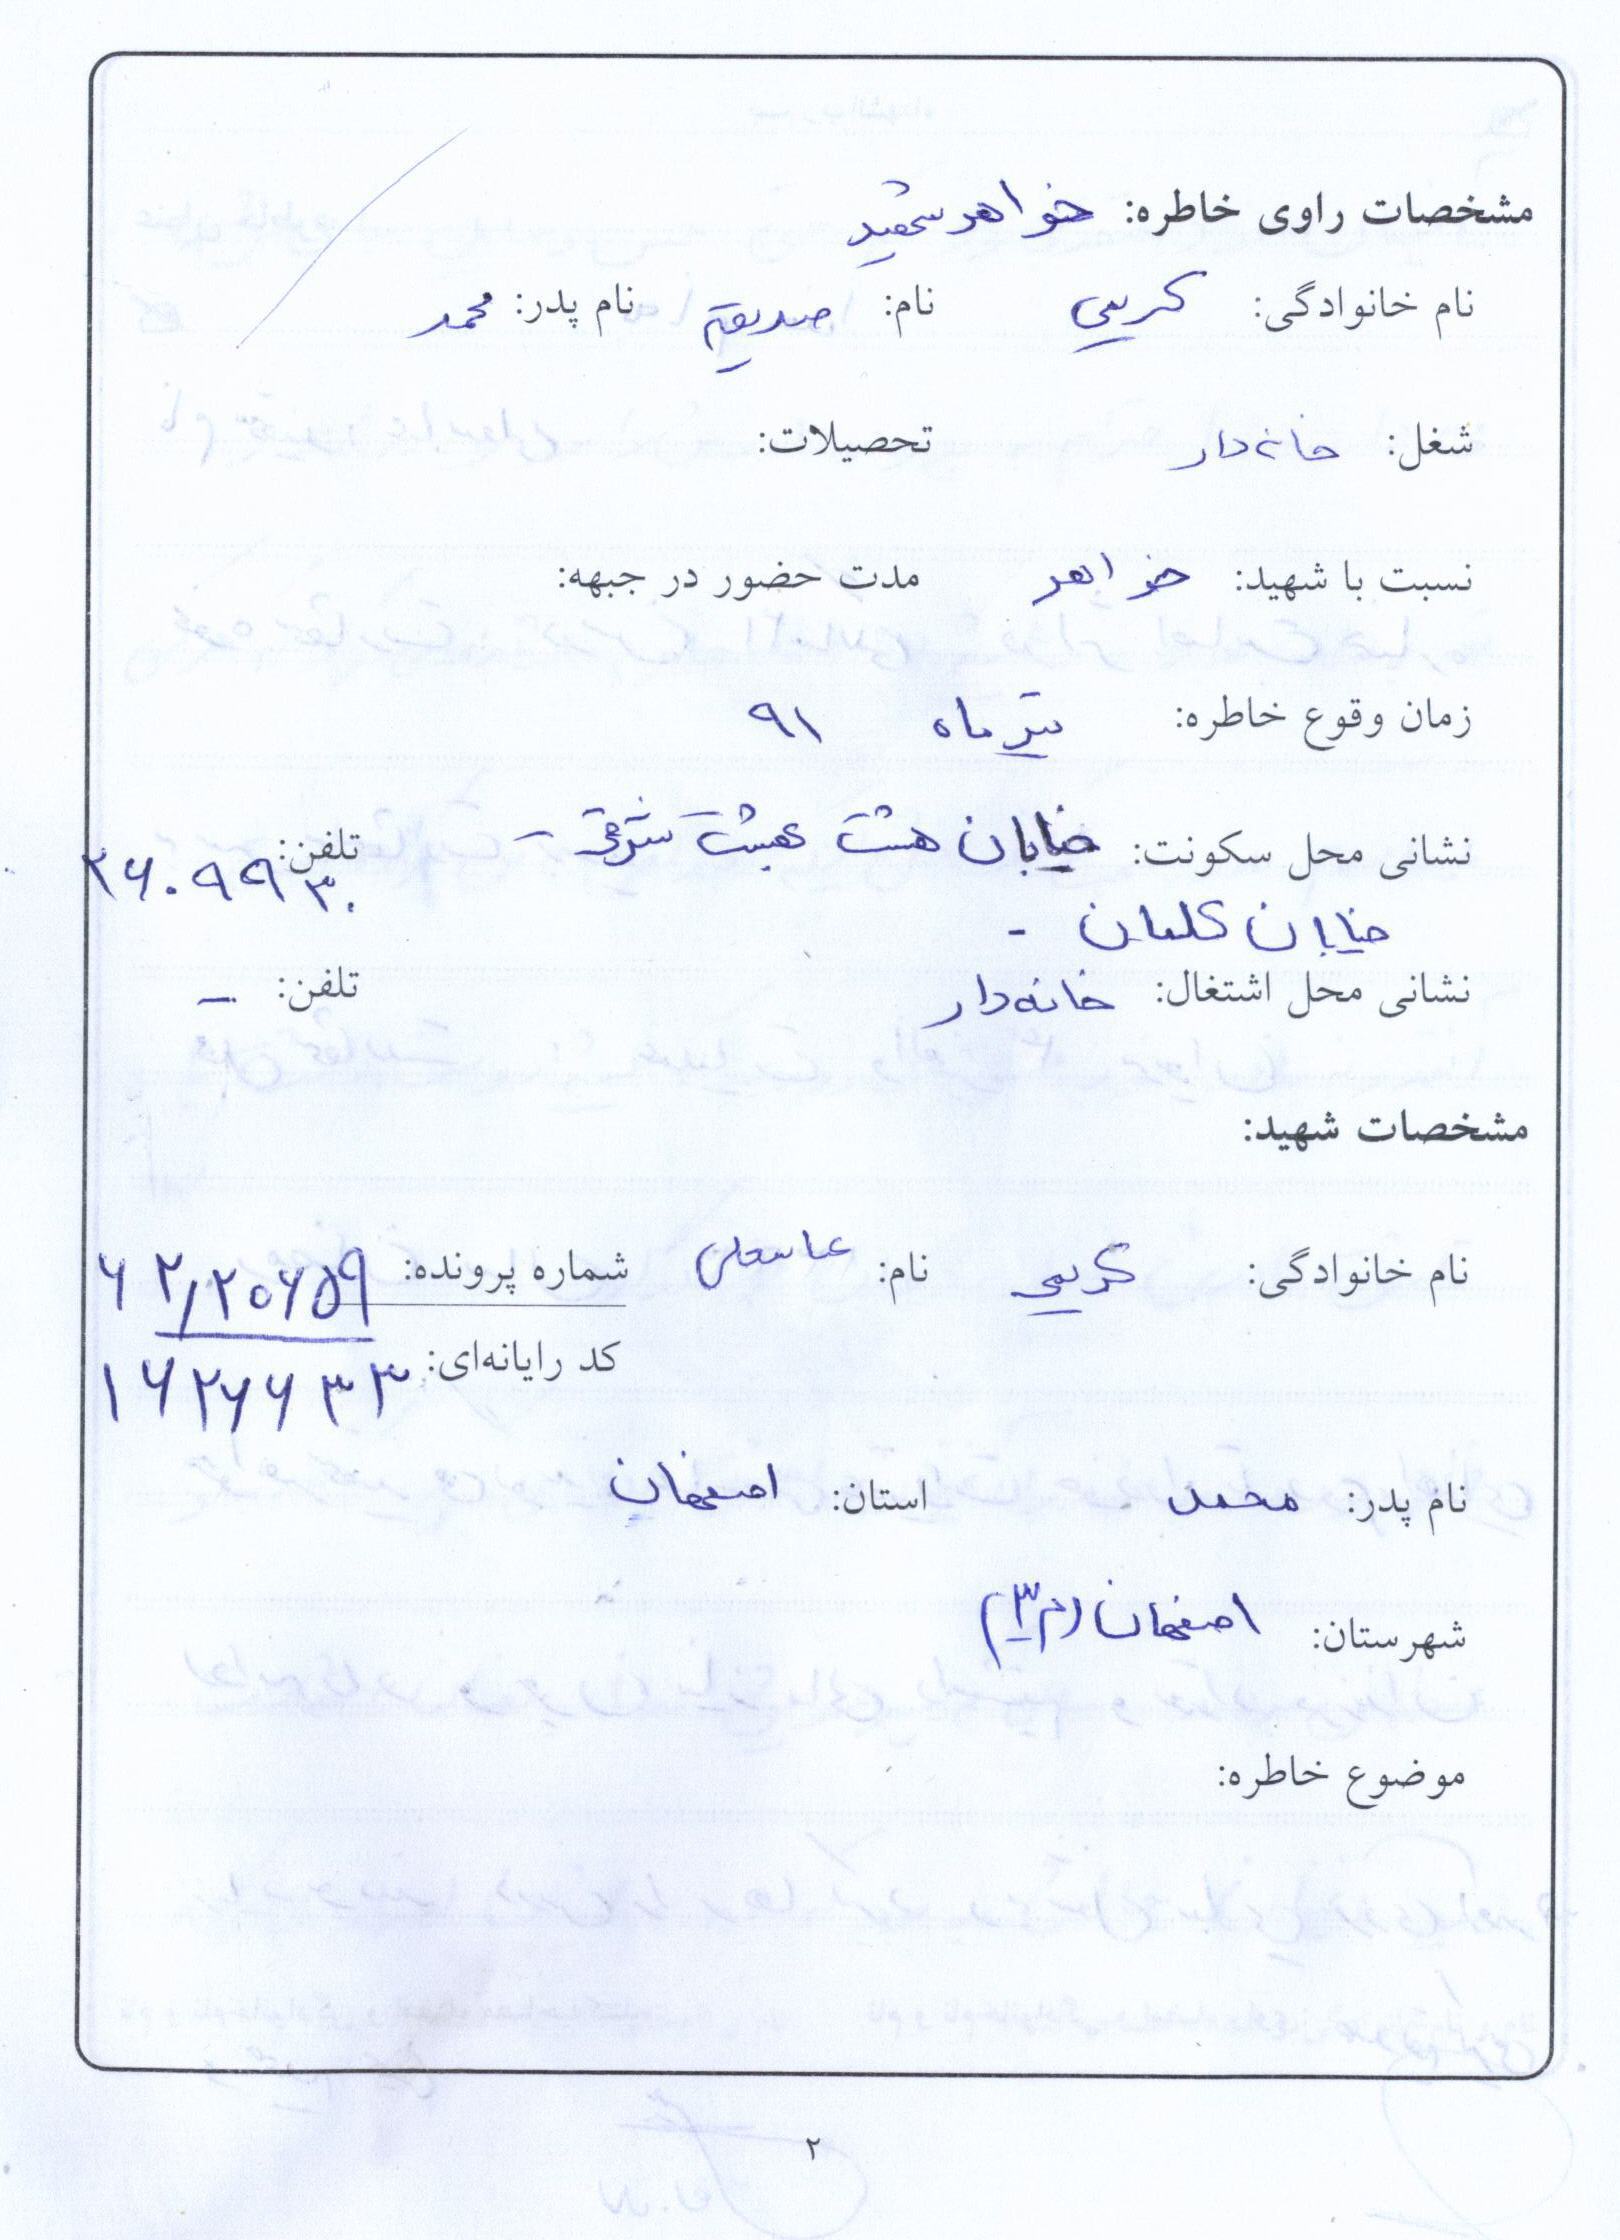 مشخصات راوی خاطره: خواهر شهید
نام خانوادگی: کریمی نام: صدیقه نام پدر: محمد
شغل: خانه‌دار تحصیلات:
نسبت با شهید: خواهر مدت حضور در جبهه:
زمان وقوع خاطره: تیر ماه ۹۱
نشانی محل سکونت: خیابان هشت بهشت شرقی - تلفن: ۲۶۰۹۹۳۰
خیابان گلستان -
نشانی محل اشتغال: خانه‌دار تلفن: –
مشخصات شهید:
نام خانوادگی: کریمی نام: عباسعلی شماره پرونده: ۶۲/۲۰۶۵۹
کد رایانه‌ای: ۱۶۲۷۶۳۳
نام پدر: محمد استان: اصفهان
شهرستان: اصفهان (م۳)
موضوع خاطره:
۲